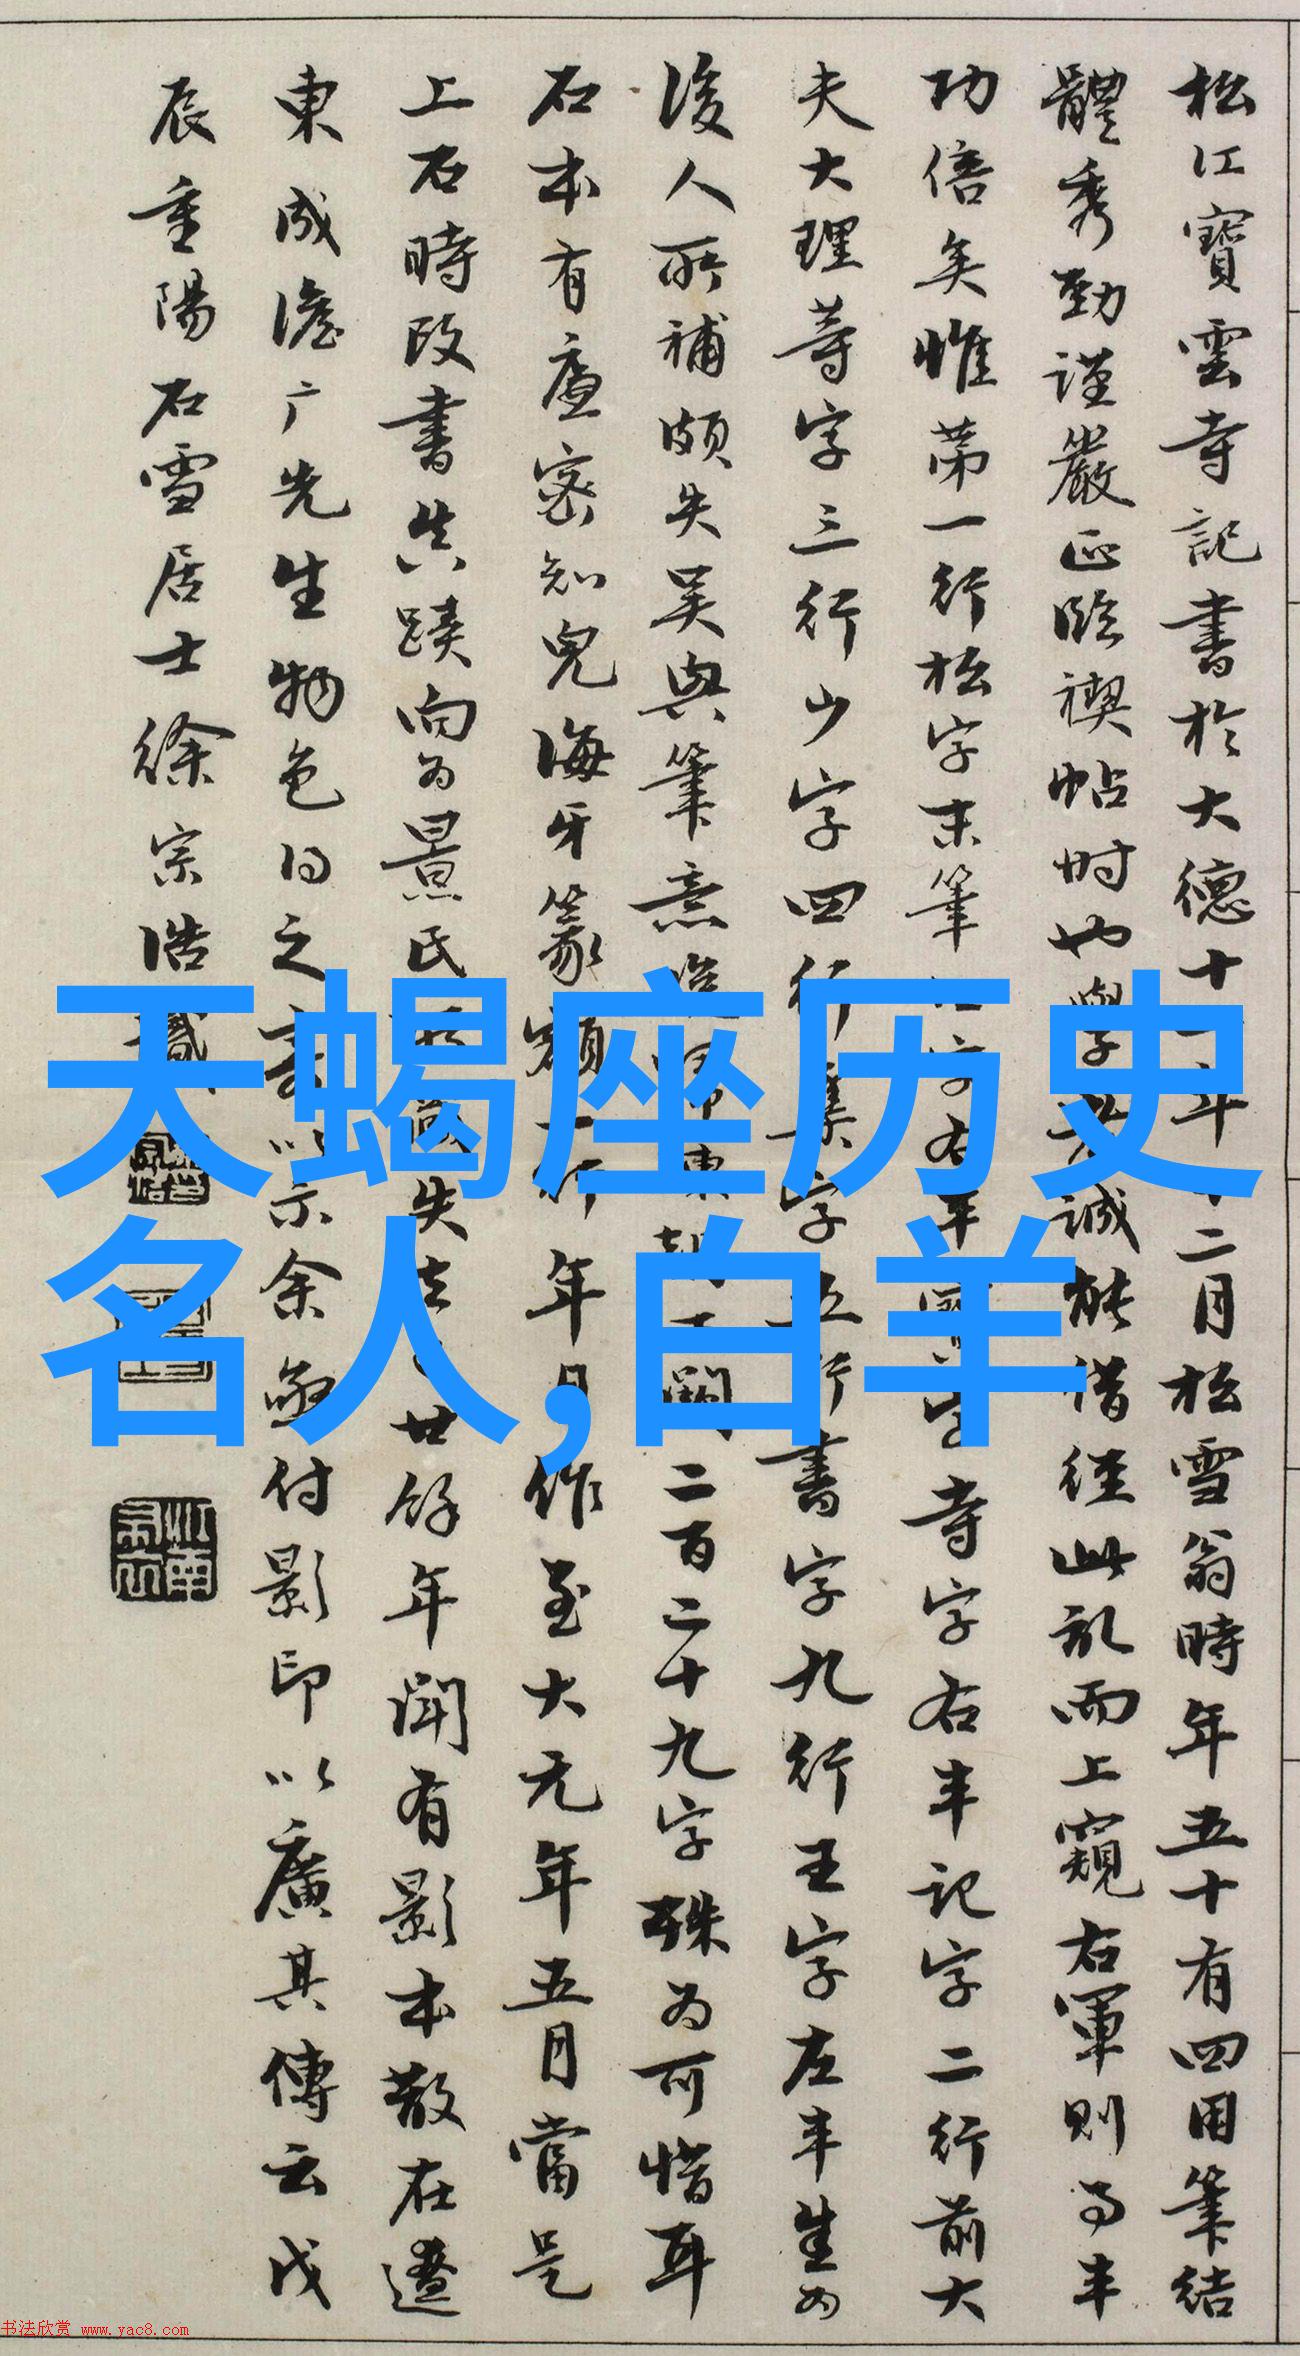 松江寶雲寺記書於大德十一年十二月松雪翁時年五十有四用筆結
體秀勁謹嚴正臨禊帖時也學者誠能借徑此記而上窺右軍則事半
功倍矣惟第一行松字末筆江字右半寶字寺字右半記字二行前大
夫大理等字三行少字四行集字五行書字九行王字左半生為
後人所補頗失吳興筆意
二百二十九字殊為可惜耳
石本有廉密知兒海牙篆額一行年月作至大元年五月當是
上石時改書真蹟向為景氏
失去廿餘年聞有影本散在遼
東成澹广先生物色得之
以示余亟付影印以廣其傳云戊
辰重陽石雪居士徐宗浩識
天蝎座历史
名人,白羊
书法欣赏 www.yac8.com